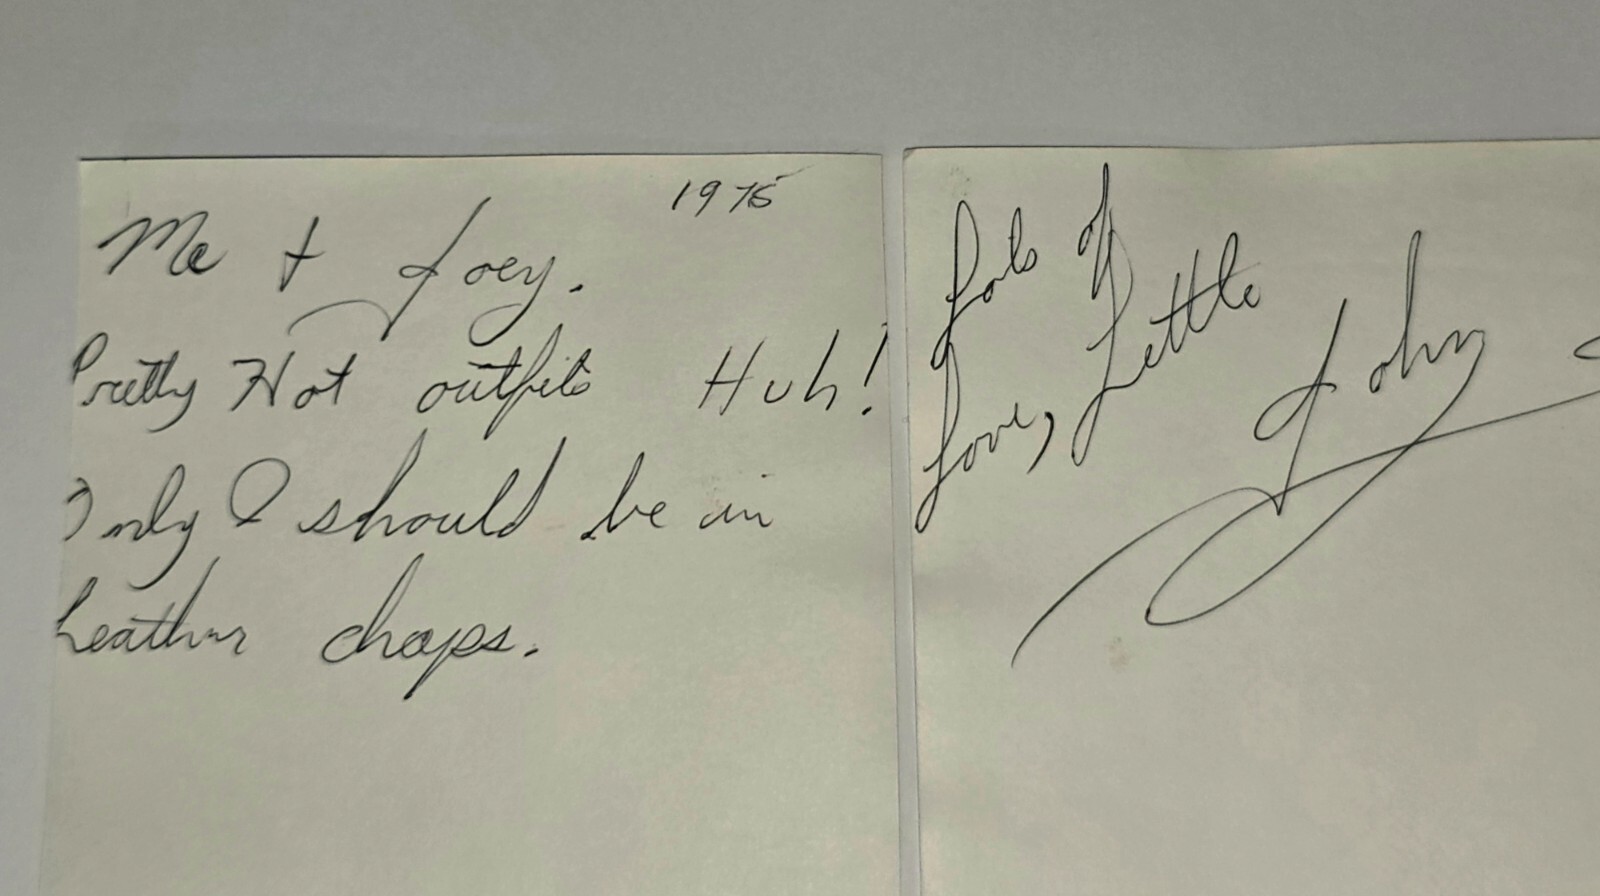 1975
Me + Joey.
Pretty Hot outfits Huh!
Only I should be in
Leather chaps.
Lots of
Love, Little
John